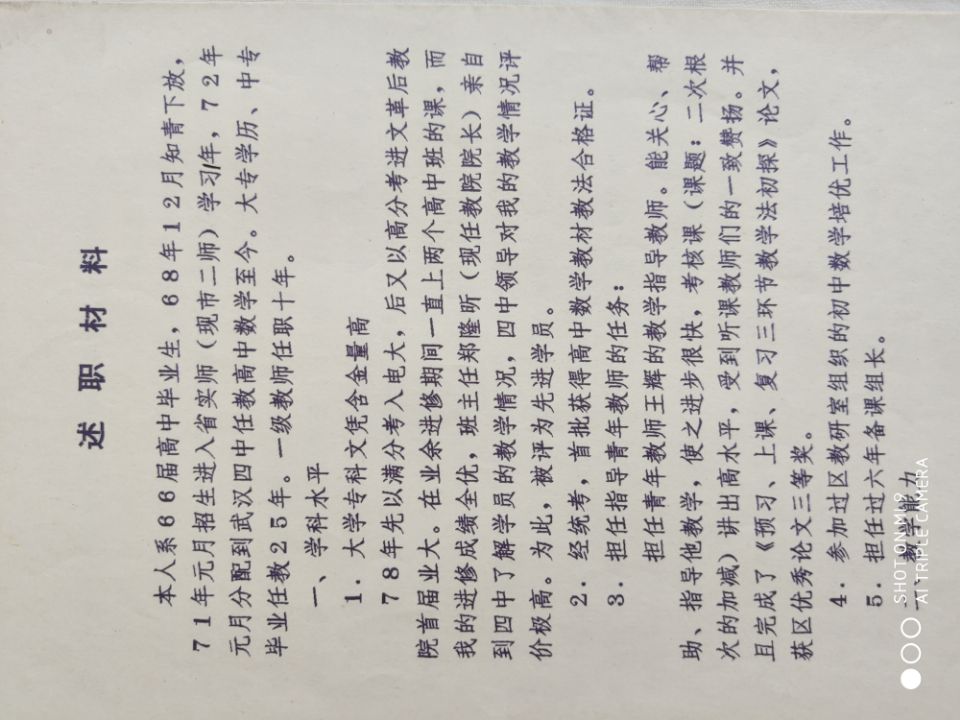 述职材料
本人系66届高中毕业生，68年12月知青下放，
71年元月招生进入省实师（现市二师）学习1年，72年
元月分配到武汉四中任教高中数学至今。大专学历、中专
毕业任教25年。一级教师任职十年。
一、学科水平
1．大学专科文凭含金量高
78年先以满分考入电大，后又以高分考进文革后教
院首届业大。在业余进修期间一直上两个高中班的课，而
我的进修成绩全优，班主任郑隆昕（现任教院院长）亲自
到四中了解学员的教学情况，四中领导对我的教学情况评
价极高。为此，被评为先进学员。
2．经统考，首批获得高中数学教材教法合格证。
3．担任指导青年教师的任务：
担任青年教师王辉的教学指导教师。能关心、帮
助、指导他教学，使之进步很快，考核课（课题：二次根
次的加减）讲出高水平，受到听课教师们的一致赞扬。并
且完成了《预习、上课、复习三环节教学法初探》论文，
获区优秀论文三等奖。
4．参加过区教研室组织的初中数学培优工作。
5．担任过六年备课组长。
教学能力
SHOT ON MI 9
AI TRIPLE CAMERA